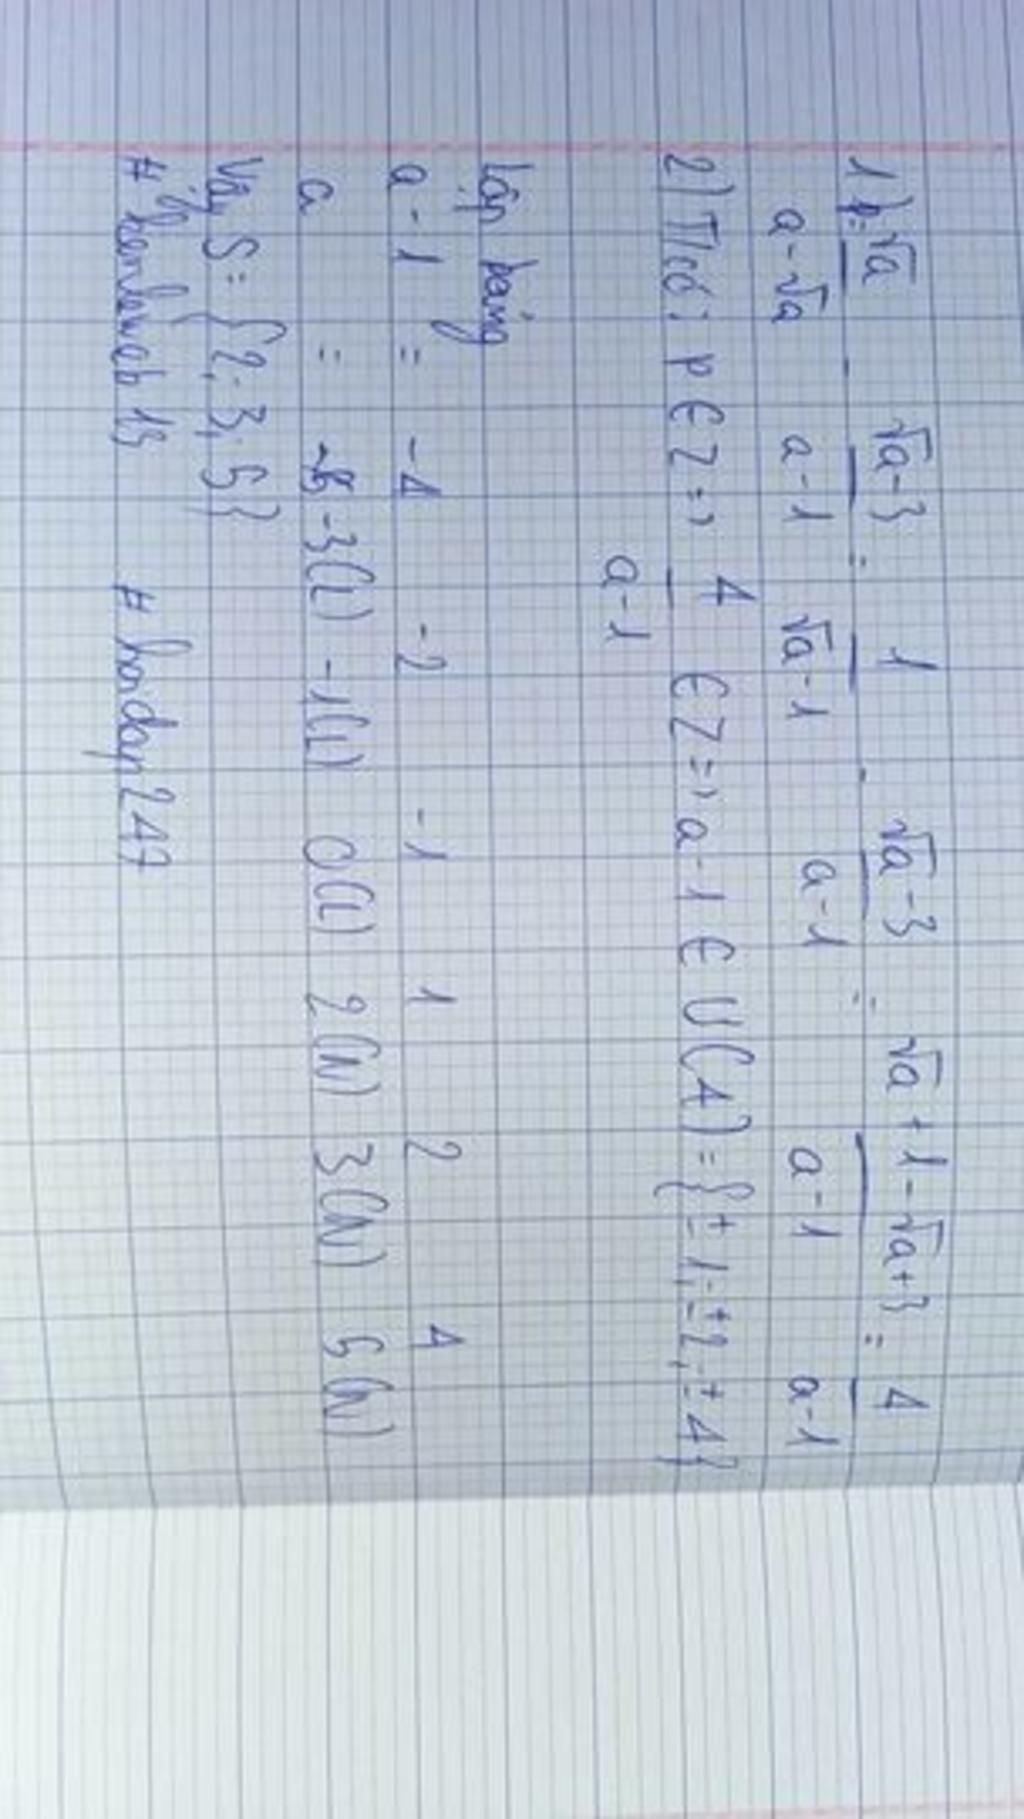 1) P = √a / a-√a - √a-3 / a-1 = 1 / √a-1 - √a-3 / a-1 = √a+1-√a+3 / a-1 = 4 / a-1
2) Tacó: P ∈ Z => 4 / a-1 ∈ Z => a-1 ∈ Ư(4) = {±1; ±2; ±4}
Lập bảng
a-1 = -4 -2 -1 1 2 4
a = -3(L) -1(L) 0(L) 2(N) 3(N) 5(N)
Vậy S = {2; 3; 5}
# hoidap247